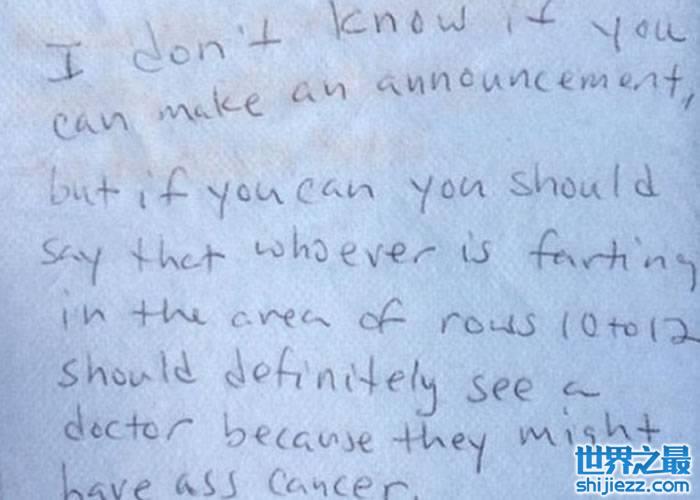 I don't know if you
can make an announcement,
but if you can you should
say that whoever is farting
in the area of rows 10 to 12
should definitely see a
doctor because they might
have ass cancer
世界之最
shijiezz.com